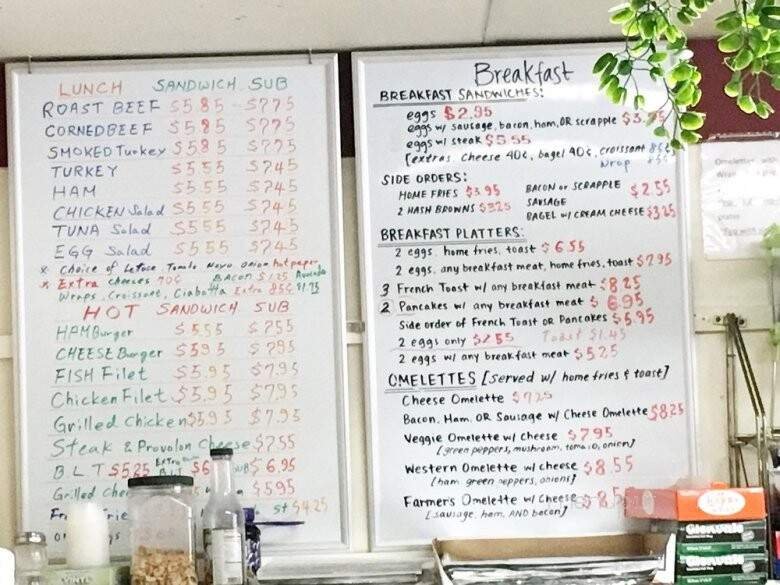 LUNCH SANDWICH SUB
ROAST BEEF $5.85 $7.75
CORNEDBEEF $5.85 $7.75
SMOKED Turkey $5.85 $7.75
TURKEY $5.55 $7.45
HAM $5.55 $7.45
CHICKEN Salad $5.55 $7.45
TUNA Salad $5.55 $7.45
EGG Salad $5.55 $7.45
* Choice of Letuce Tomato Mayo onion hot peper
* Extra cheeses 70¢ BACON $1.25 Avocado
Wraps, Croissant, Ciabatta Extra 85¢ $1.75
HOT SANDWICH SUB
HAMBurger $5.55 $7.55
CHEESE Burger $5.95 $7.95
FISH Filet $5.95 $7.95
Chicken Filet $5.95 $7.95
Grilled Chicken $5.95 $7.95
Steak & Provolon Cheese $7.55
BLT $5.25 Extra $6 SUB $6.95
Grilled $5.95
$4.25
Breakfast
BREAKFAST SANDWICHES:
eggs $2.95
eggs w/ sausage, bacon, ham, OR scrapple
eggs w/ steak $5.55
[extras cheese 40¢, bagel 40¢, croissant 85¢
Wrap 85¢
SIDE ORDERS:
HOME FRIES $3.95
2 HASH BROWNS $3.25
BACON or SCRAPPLE $2.55
SAUSAGE
BAGEL w/ CREAM CHEESE $3.25
BREAKFAST PLATTERS:
2 eggs, home fries, toast $6.55
2 eggs, any breakfast meat, home fries, toast $7.95
3 French Toast w/ any breakfast meat $8.25
2 Pancakes w/ any breakfast meat $6.95
Side order of French Toast OR Pancakes $5.95
2 eggs only $2.55 Toast $1.45
2 eggs w/ any breakfast meat $5.25
OMELETTES [Served w/ home fries & toast]
Cheese Omelette $7.25
Bacon, Ham, OR Sausage w/ Cheese Omelette $8.25
Veggie Omelette w/ cheese $7.95
[green peppers, mushroom, tomato, onion]
Western Omelette w/ cheese $8.55
[ham, green peppers, onions]
Farmer's Omelette w/ Cheese $8.5
[sausage, ham, AND bacon]
Glenvale
VINYL